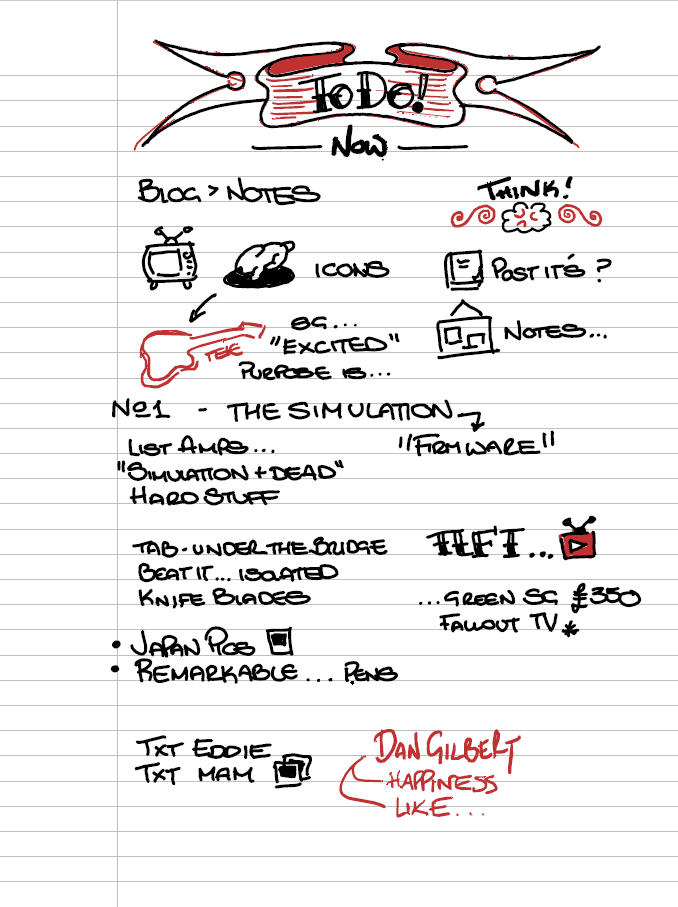 ToDo!
Now
BLOG > NOTES
THINK!
ICONS
POST IT'S ?
TELE
SG...
"EXCITED"
PURPOSE IS...
NOTES...
No1 - THE SIMULATION
LIST AMPS...
"FIRMWARE"
"SIMULATION + DEAD"
HARD STUFF
TAB - UNDER THE BRIDGE
BEAT IT... ISOLATED
KNIFE BLADES
...GREEN SG £350
FALLOUT TV *
• JAPAN PICS
• REMARKABLE... PENS
TXT EDDIE
TXT MAM
DAN GILBERT
HAPPINESS
LIKE...